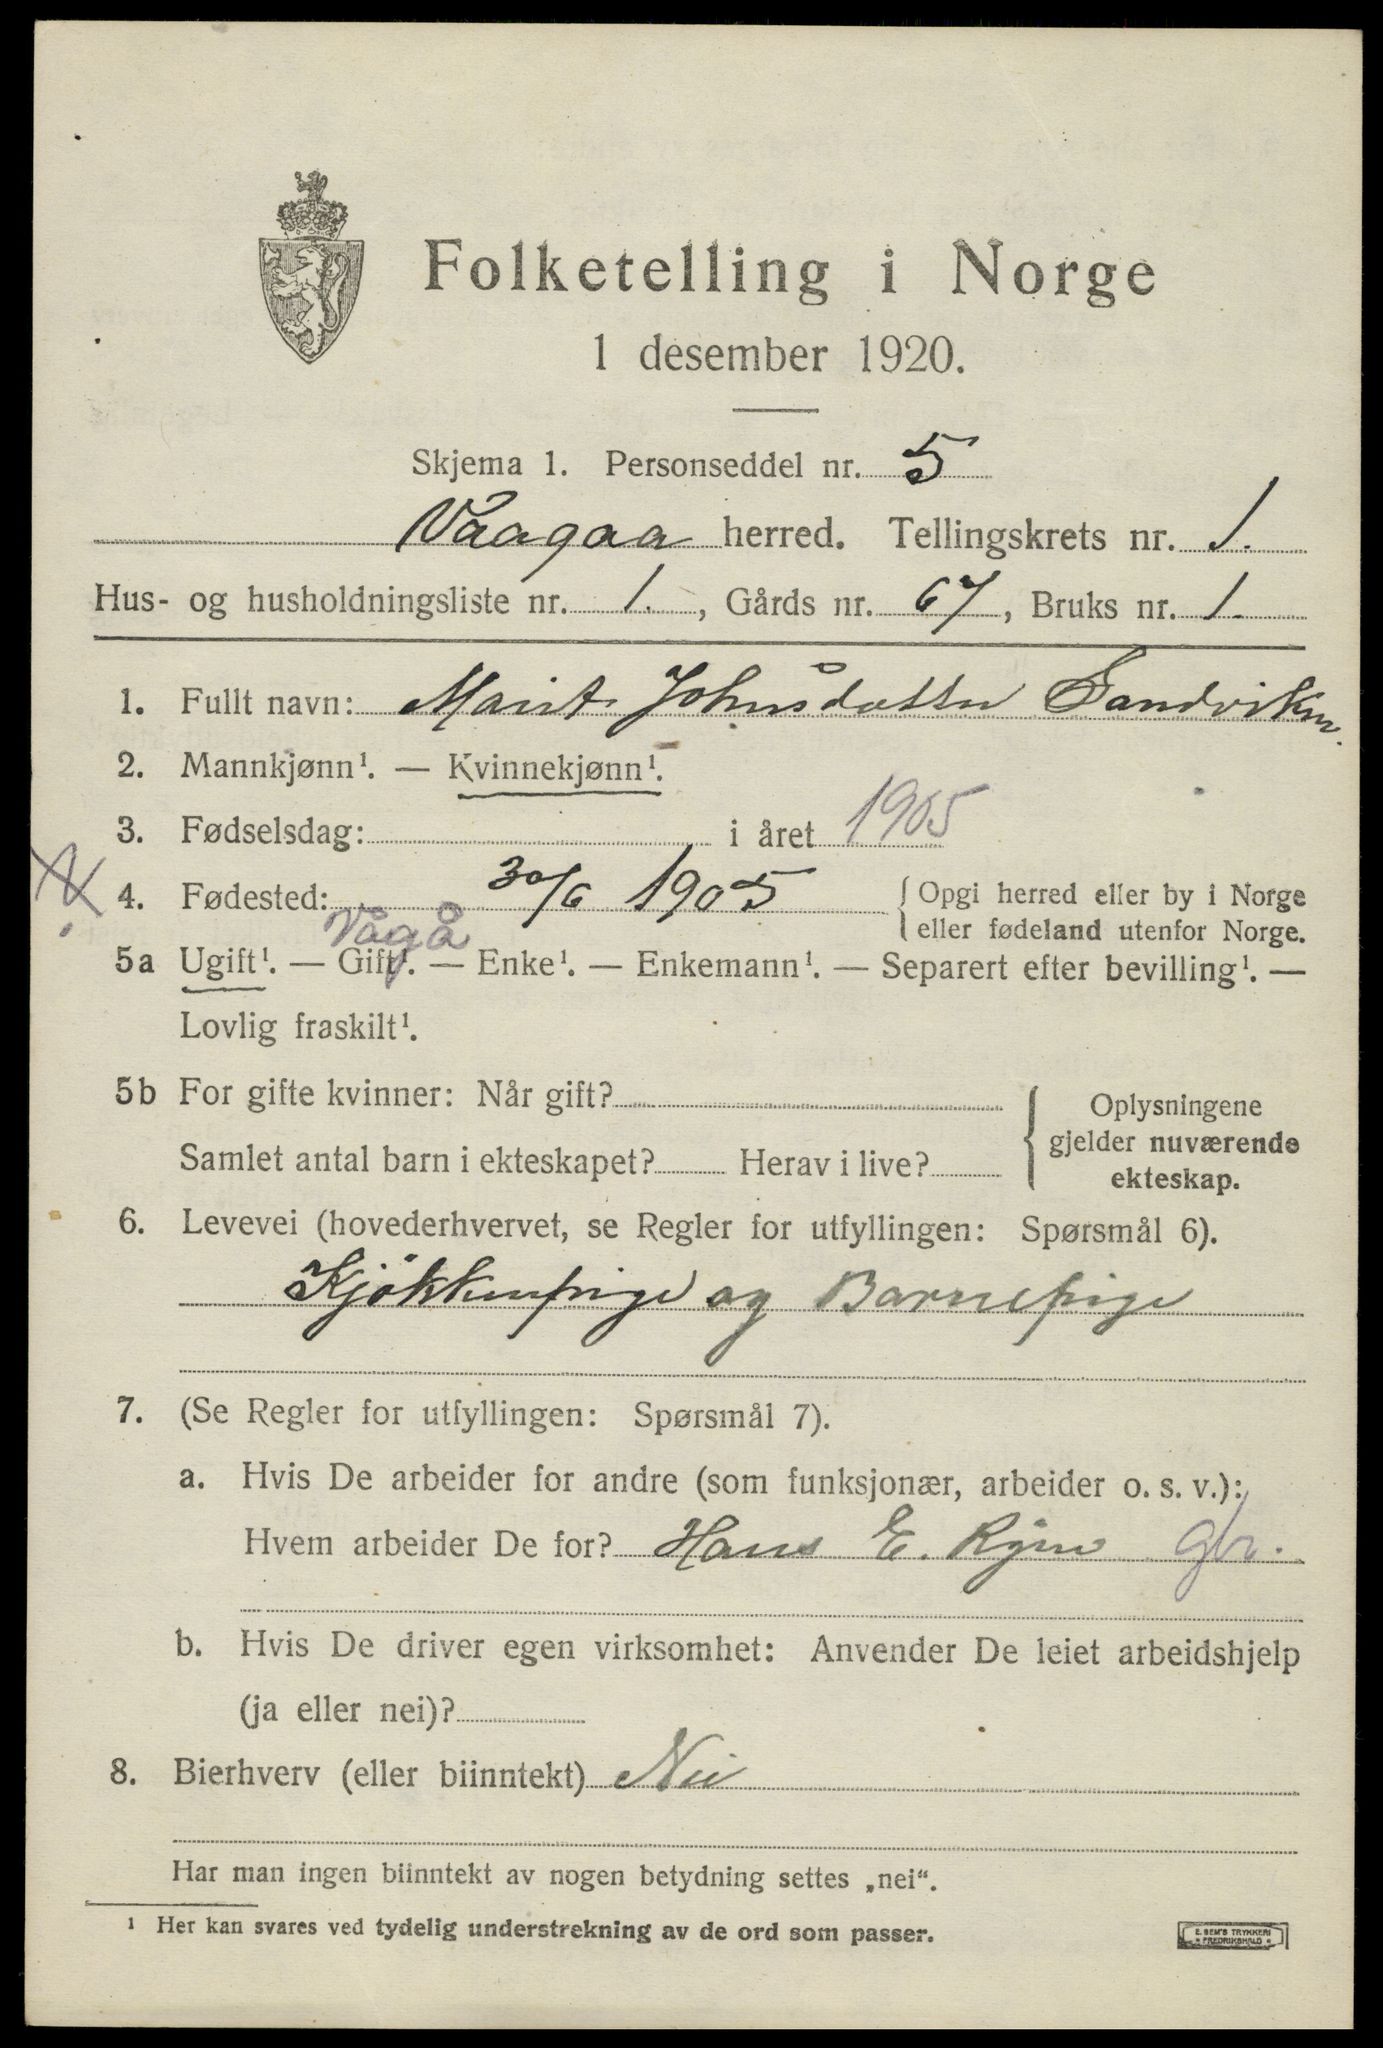 Folketelling i Norge
1 desember 1920.
Skjema 1. Personseddel nr. 5
Vaagaa herred. Tellingskrets nr. 1.
Hus- og husholdningsliste nr. 1., Gårds nr. 67, Bruks nr. 1.
1. Fullt navn: Marit Johnsdatter Sandviken.
2. Mannkjønn¹. — Kvinnekjønn¹.
3. Fødselsdag: i året 1905
4. Fødested: 30/6 1905 Opgi herred eller by i Norge
eller fødeland utenfor Norge.
Vågå
5a Ugift¹. — Gift¹. — Enke¹. — Enkemann¹. — Separert efter bevilling¹. —
Lovlig fraskilt¹.
5b For gifte kvinner: Når gift?
Samlet antal barn i ekteskapet? Herav i live?
Oplysningene
gjelder nuværende
ekteskap.
6. Levevei (hovederhvervet, se Regler for utfyllingen: Spørsmål 6).
Kjökkenpige og Barnepige
7. (Se Regler for utfyllingen: Spørsmål 7).
a. Hvis De arbeider for andre (som funksjonær, arbeider o. s. v.):
Hvem arbeider De for? Hans E. gbr.
b. Hvis De driver egen virksomhet: Anvender De leiet arbeidshjelp
(ja eller nei)?
8. Bierhverv (eller biinntekt) Nei
Har man ingen biinntekt av nogen betydning settes „nei“.
¹ Her kan svares ved tydelig understrekning av de ord som passer.
E. SEM'S TRYKKERI
FREDRIKSHALD